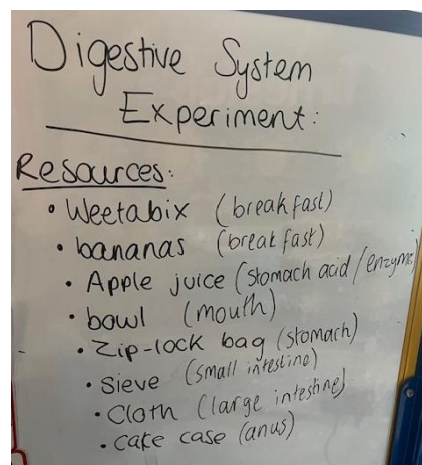 Digestive System
Experiment:
Resources:
• Weetabix (breakfast)
• bananas (breakfast)
• Apple juice (stomach acid/enzyme)
• bowl (mouth)
• Zip-lock bag (stomach)
• Sieve (small intestine)
• Cloth (large intestine)
• cake case (anus)